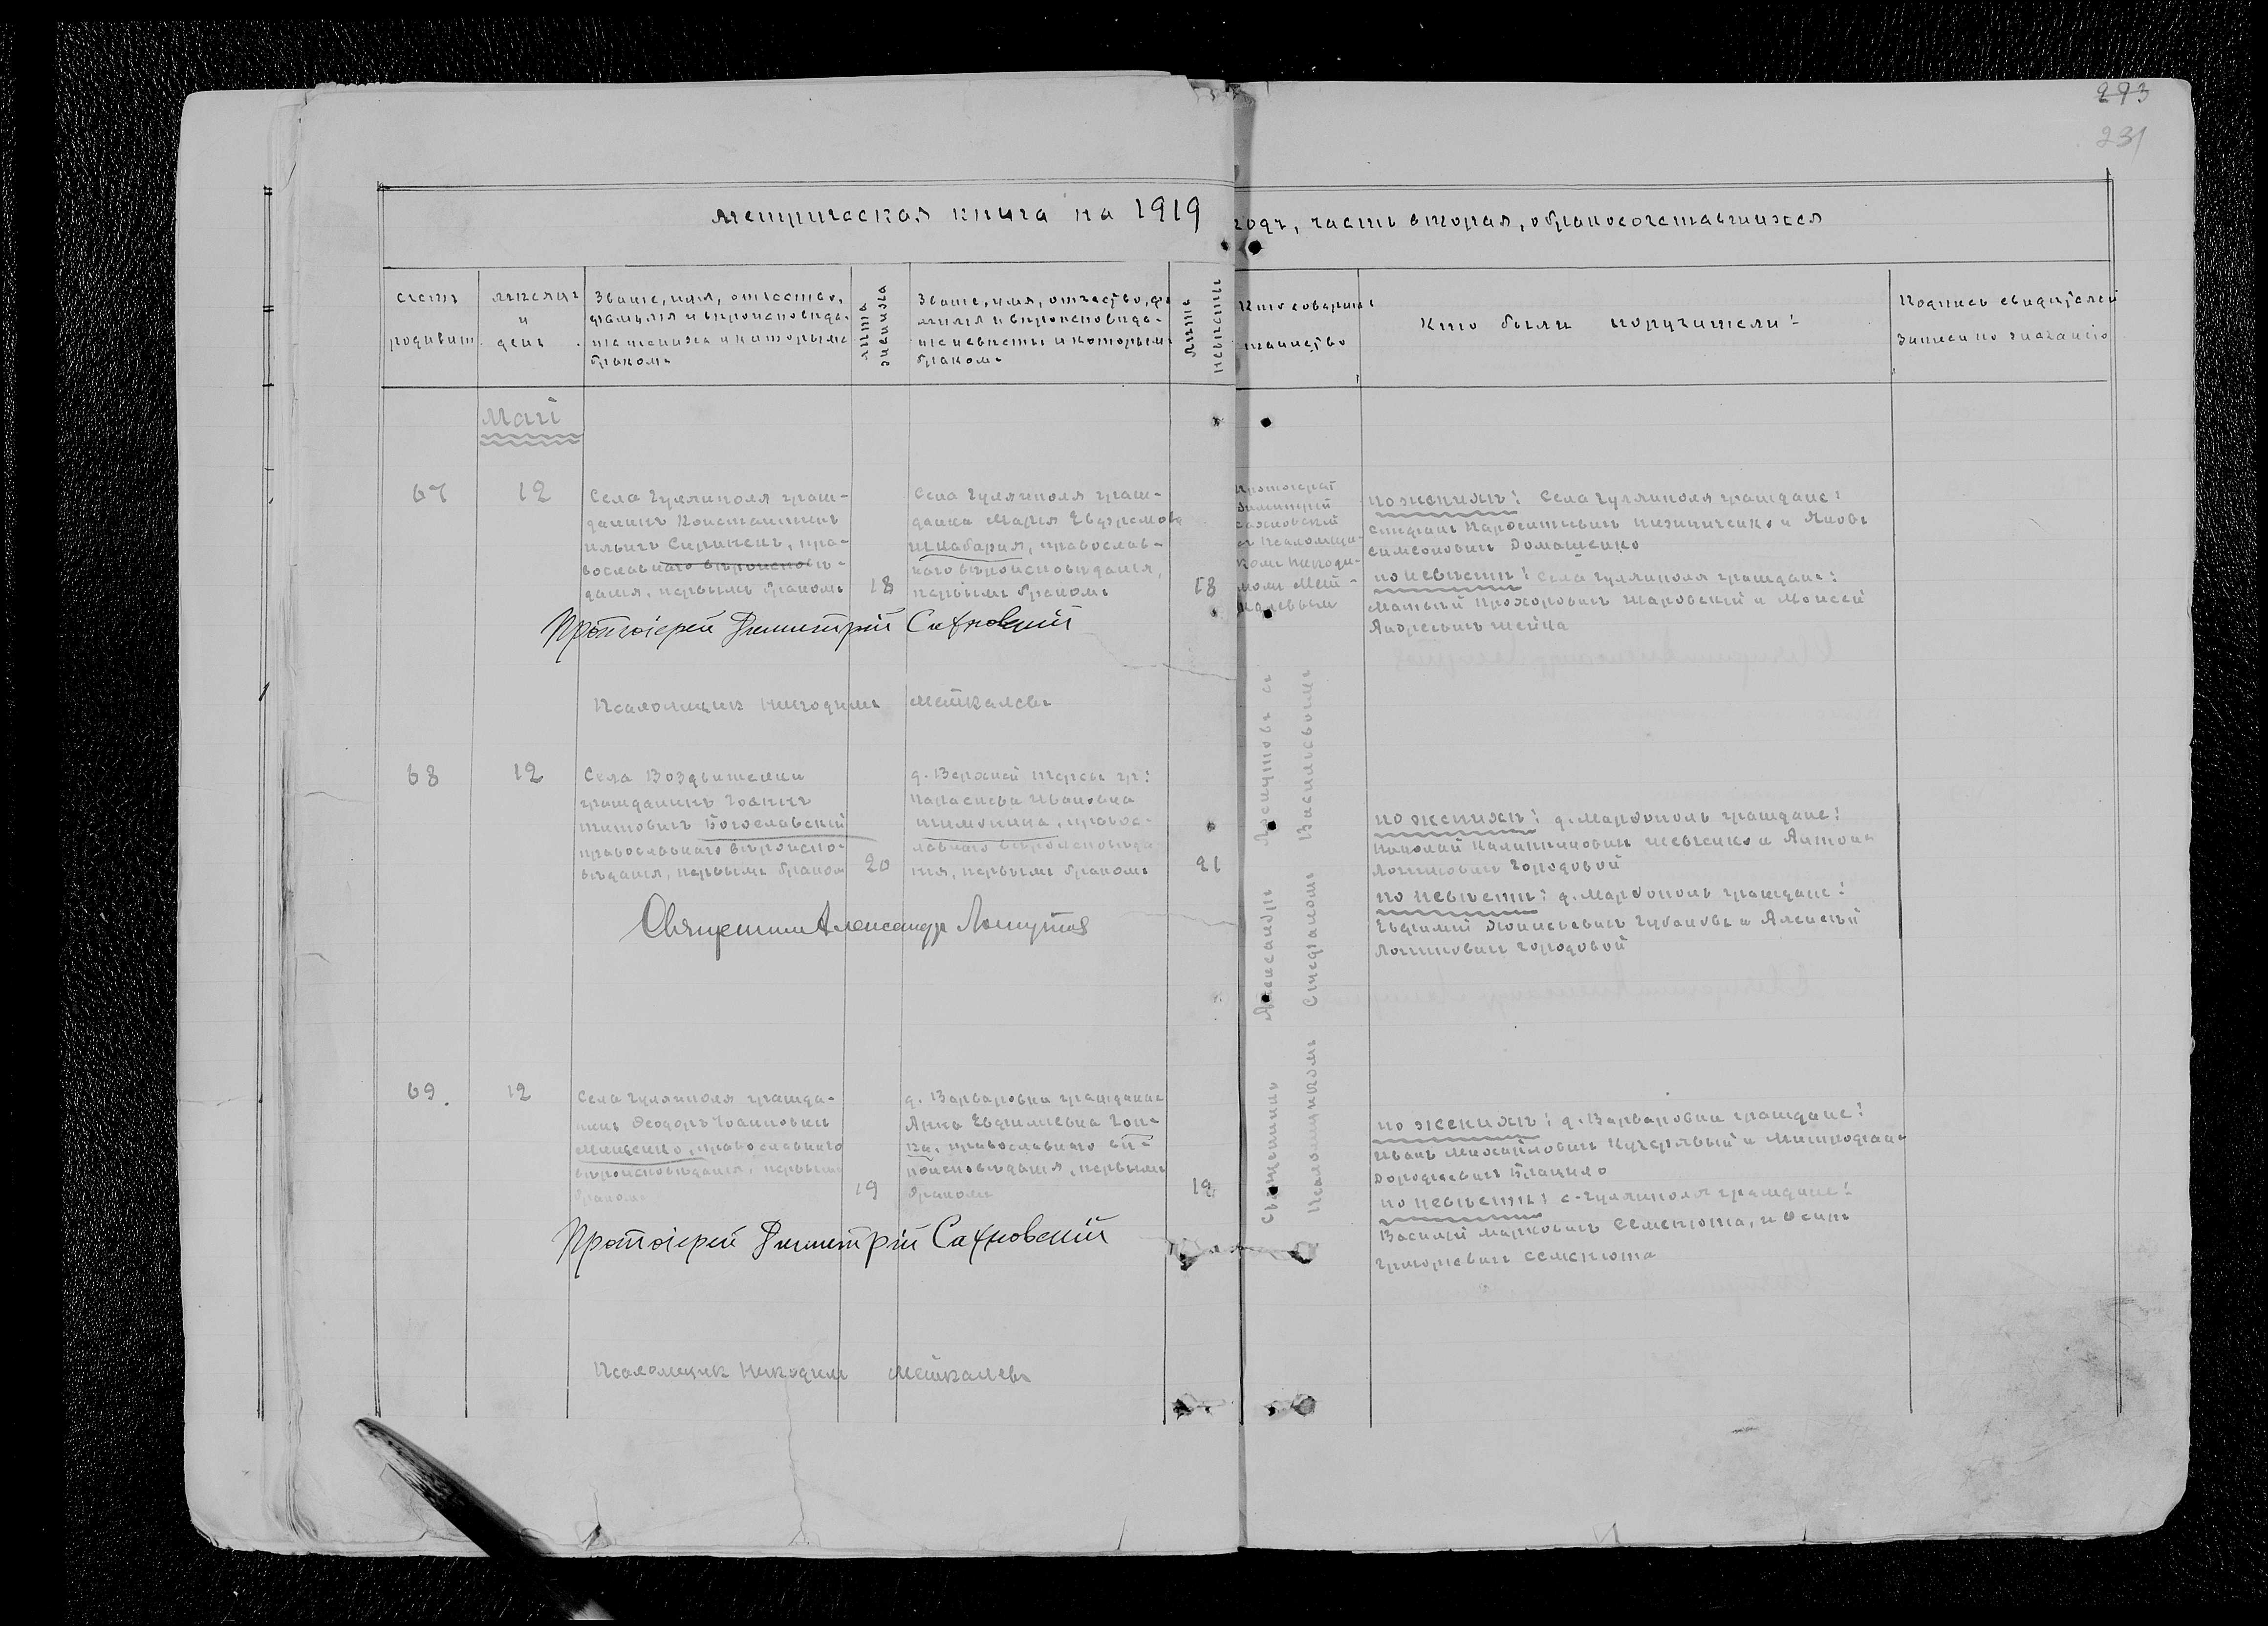 293
231
метрическая книга на 1919 годъ, часть вторая, о бракосочетавшихся
счетъ
родивш.
мѣсяцъ
и
день
Званіе, имя, отчество,
фамилія и вѣроисповѣда-
ніе жениха и которымъ
бракомъ
лѣта
жениха
Званіе, имя, отчество, фа-
милія и вѣроисповѣда-
ніе невѣсты и которымъ
бракомъ
лѣта
невѣсты
Кто совершалъ
таинство
Кто были поручители:
Подпись свидѣтелей
записи по желанію
Май
67
12
Села Гуляйполя граж-
данинъ Константинъ
Ильичъ Сириченъ, пра-
вославнаго вѣроисповѣ-
данія, первымъ бракомъ
18
Села Гуляйполя граж-
данка Марія Евфремова
Шкабарня, православ-
наго вѣроисповѣданія,
первымъ бракомъ
18
Протоіерей
Димитрій
Сахновскій
съ псаломщи-
комъ Никоди-
момъ Мет-
калевымъ
по женихѣ: села Гуляйполя граждане:
Стефанъ Карфентьевичъ Низниченко и Яковъ
Симеоновичъ Домашенко
по невѣстѣ: села Гуляйполя граждане:
Матвѣй Прохоровичъ Шаровскій и Моисей
Андреевичъ Шейка
Протоіерей Димитрій Сахновскій
Псаломщикъ Никодимъ Меткалевъ
68
12
Села Воздвиженки
гражданинъ Іоаннъ
Титовичъ Богославскій
православнаго вѣроиспо-
вѣданія, первымъ бракомъ
20
д. Верхней Терсы гр:
Параскева Ивановна
Тимохина, правос-
лавнаго вѣроисповѣда
нія, первымъ бракомъ
21
Священникъ Александръ Лоскутовъ съ
псаломщикомъ Стефаномъ Васильевымъ
по женихѣ: д. Марфополь граждане:
Николай Калинниковичъ Шевченко и Антонъ
Логиновичъ Городовой
по невѣстѣ: д. Марфополь граждане:
Евфимій Діонисіевичъ Губановъ и Алексѣй
Логиновичъ Городовой
Священникъ Александръ Лоскутовъ
69.
12
Села Гуляйполя гражда-
нинъ Ѳеодоръ Іоанновичъ
Мищенко, православнаго
вѣроисповѣданія, первымъ
бракомъ
19
д. Варваровки гражданка
Анна Евфиміевна Гон-
ка, православнаго вѣ-
роисповѣданія, первымъ
бракомъ
19
по женихѣ: д. Варваровки граждане:
Иванъ Михайловичъ Кучерявый и Митрофанъ
Дорофеевичъ Брацило
по невѣстѣ: с. Гуляйполя граждане:
Василій Марковичъ Семенюта, и Осипъ
Григорьевичъ Семенюта
Протоіерей Димитрій Сахновскій
Псаломщикъ Никодимъ Меткалевъ